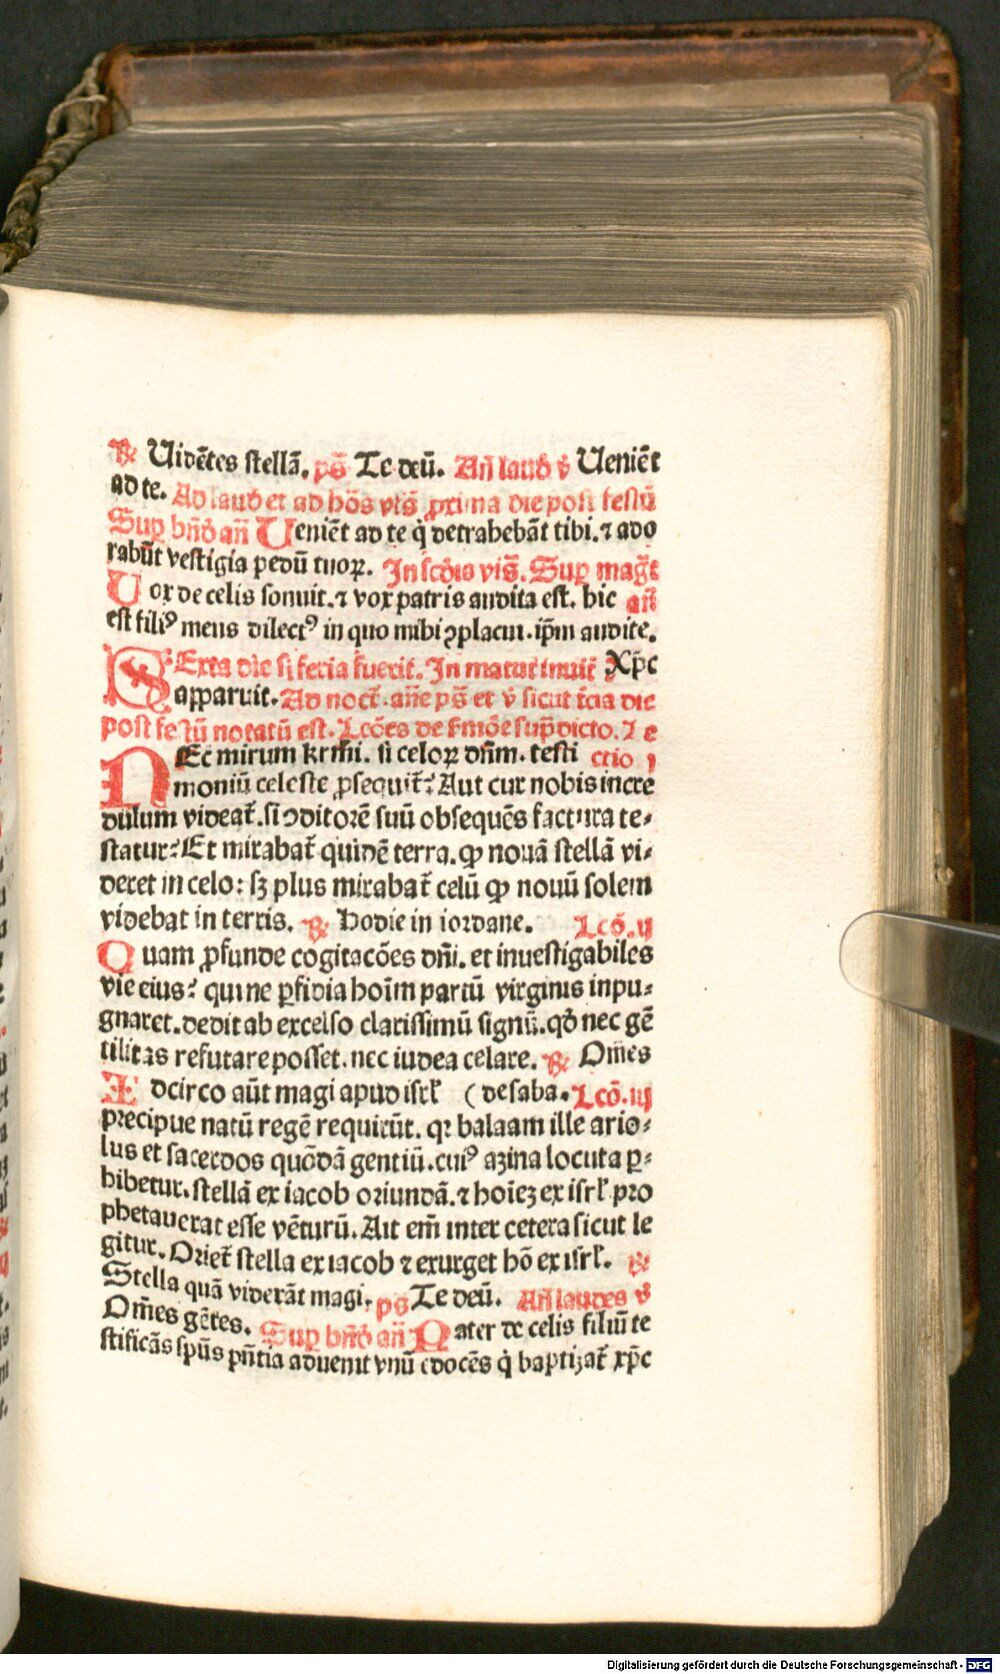 ℟ Uidētes stellā. ps̄ Te deū. Añ laud̄ v̄ Ueniēt
ad te. Ad laud̄ et ad hōs vis̄ ꝓxima die post festū
Sup bn̄d̄ añ Ueniēt ad te q̇ detrahebāt tibi. ⁊ ado
rabūt vestigia pedū tuoꝝ. In scd̄is vis̄. Sup mag̃t
Uox de celis sonuit. ⁊ vox patris audita est. hic añ
est filiꝰ meus dilectꝰ in quo mihi ꝯplacui. ip̄m audite.
Sexta die si feria fuerit. In matut̄ inuit̄ Xp̄c
apparuit. Ad noct̄. añe ps̄ et v̄ sicut t̄cia die
post festū notatū est. Lcōes de s̄mōe sup̄dicto. Le
Nec mirum kr̄mi. si celoꝝ dn̄m. testi ctio i
moniū celeste ꝓsequit̄: Aut cur nobis incre
dulum videat̄. si ꝯditorē suū obsequēs factura te⸗
statur? Et mirabat̄ quidē terra. ꝙ nouā stellā vi⸗
deret in celo: sꝫ plus mirabat̄ celū ꝙ nouū solem
videbat in terris. ℟ Hodie in iordane. Lcō. ij
Quam ꝓfunde cogitacōes dn̄i. et inuestigabiles
vie eius? qui ne ꝑfidia hoīm partū virginis inpu⸗
gnaret. dedit ab excelso clarissimū signū. qd̄ nec gē
tilitas refutare posset. nec iudea celare. ℟ Om̄es
Idcirco aūt magi apud isrł (de saba. Lcō. iij
precipue natū regē requirūt. qꝛ balaam ille ario⸗
lus et sacerdos quōdā gentiū. cuiꝰ azina locuta ꝑ⸗
hibetur. stellā ex iacob oriundā. ⁊ hoīeꝫ ex isrł pro
phetauerat esse vēturū. Ait em̄ inter cetera sicut le
gitur. Oriet̄ stella ex iacob ⁊ exurget hō ex isrł. ℟
Stella quā viderāt magi. ps̄ Te deū. Añ laudes v̄
Om̄es gētes. Sup bn̄d̄ añ Pater de celis filiū te
stificās sp̄us p̄ntia aduenit vnū edocēs q̇ baptizat̄ xp̄c
Digitalisierung gefördert durch die Deutsche Forschungsgemeinschaft - DFG